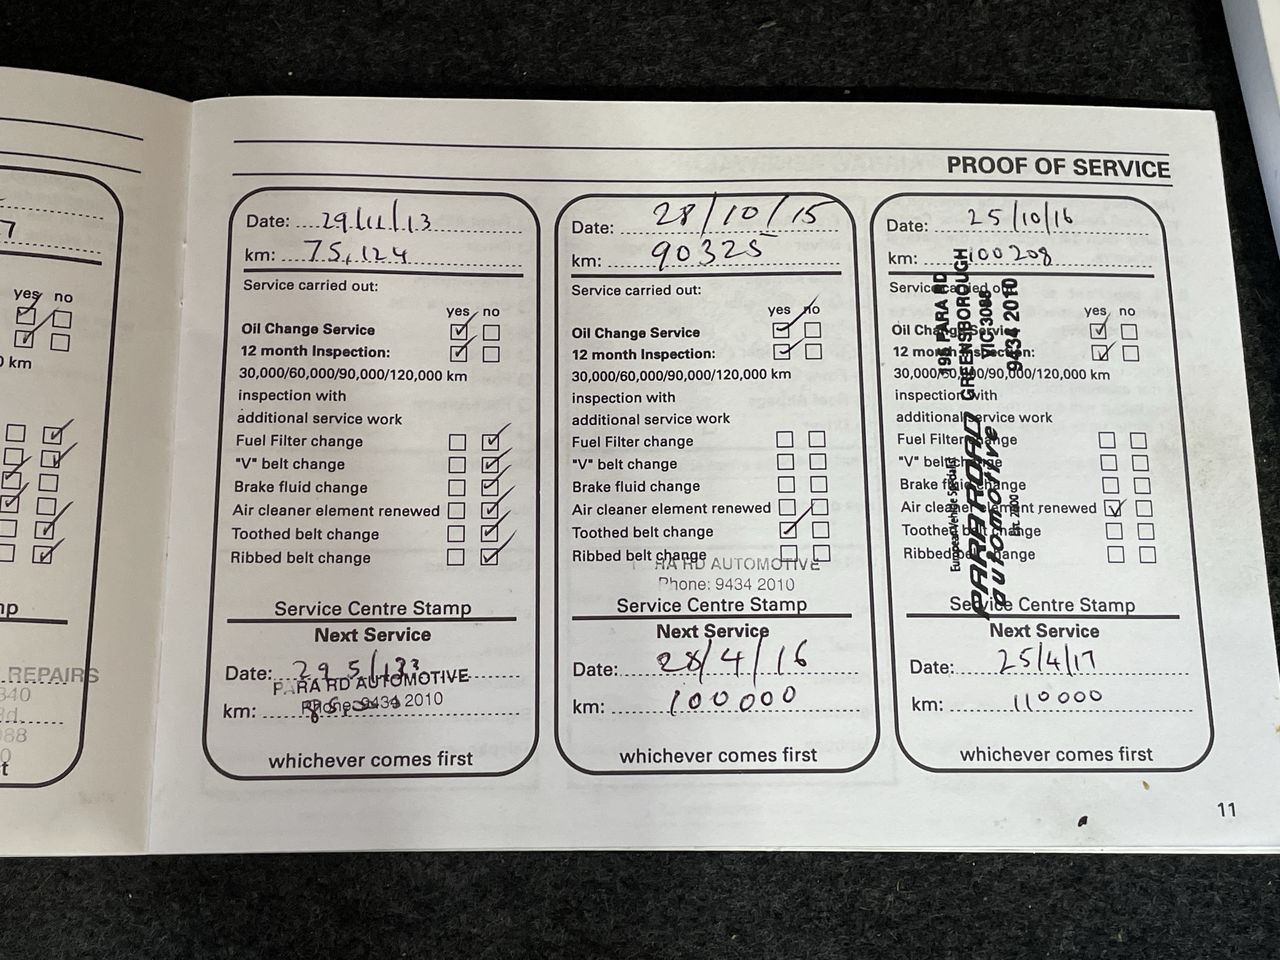 PROOF OF SERVICE
7
yes no
0 km
REPAIRS
340
88
Date: 29/11/13
km: 75,124
Service carried out:
yes no
Oil Change Service
12 month Inspection:
30,000/60,000/90,000/120,000 km
inspection with
additional service work
Fuel Filter change
"V" belt change
Brake fluid change
Air cleaner element renewed
Toothed belt change
Ribbed belt change
Service Centre Stamp
Next Service
Date:
PARA RD AUTOMOTIVE
Phone: 9434 2010
km:
whichever comes first
Date: 28/10/15
km: 90325
Service carried out:
yes no
Oil Change Service
12 month Inspection:
30,000/60,000/90,000/120,000 km
inspection with
additional service work
Fuel Filter change
"V" belt change
Brake fluid change
Air cleaner element renewed
Toothed belt change
Ribbed belt change
RA RD AUTOMOTIVE
Phone: 9434 2010
Service Centre Stamp
Next Service
Date: 28/4/16
km: 100000
whichever comes first
Date: 25/10/16
km: 100208
Service carried out:
yes no
Oil Change Service
12 month Inspection:
30,000/60,000/90,000/120,000 km
inspection with
additional service work
Fuel Filter change
"V" belt change
Brake fluid change
Air cleaner element renewed
Toothed belt change
Ribbed belt change
European Vehicle Specialist
PARA ROAD
automotive
Est. 2000
195 PARA RD
GREENSBOROUGH
VIC 3088
9434 2010
Service Centre Stamp
Next Service
Date: 25/4/17
km: 110000
whichever comes first
11